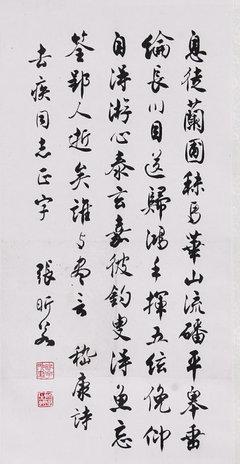 息徒蘭圃秣馬華山流磻平皋垂
綸長川目送歸鴻手揮五絃俛仰
自得游心泰玄嘉彼釣叟得魚忘
筌郢人逝矣誰与盡言 嵇康詩
去疾同志正字 張昕若